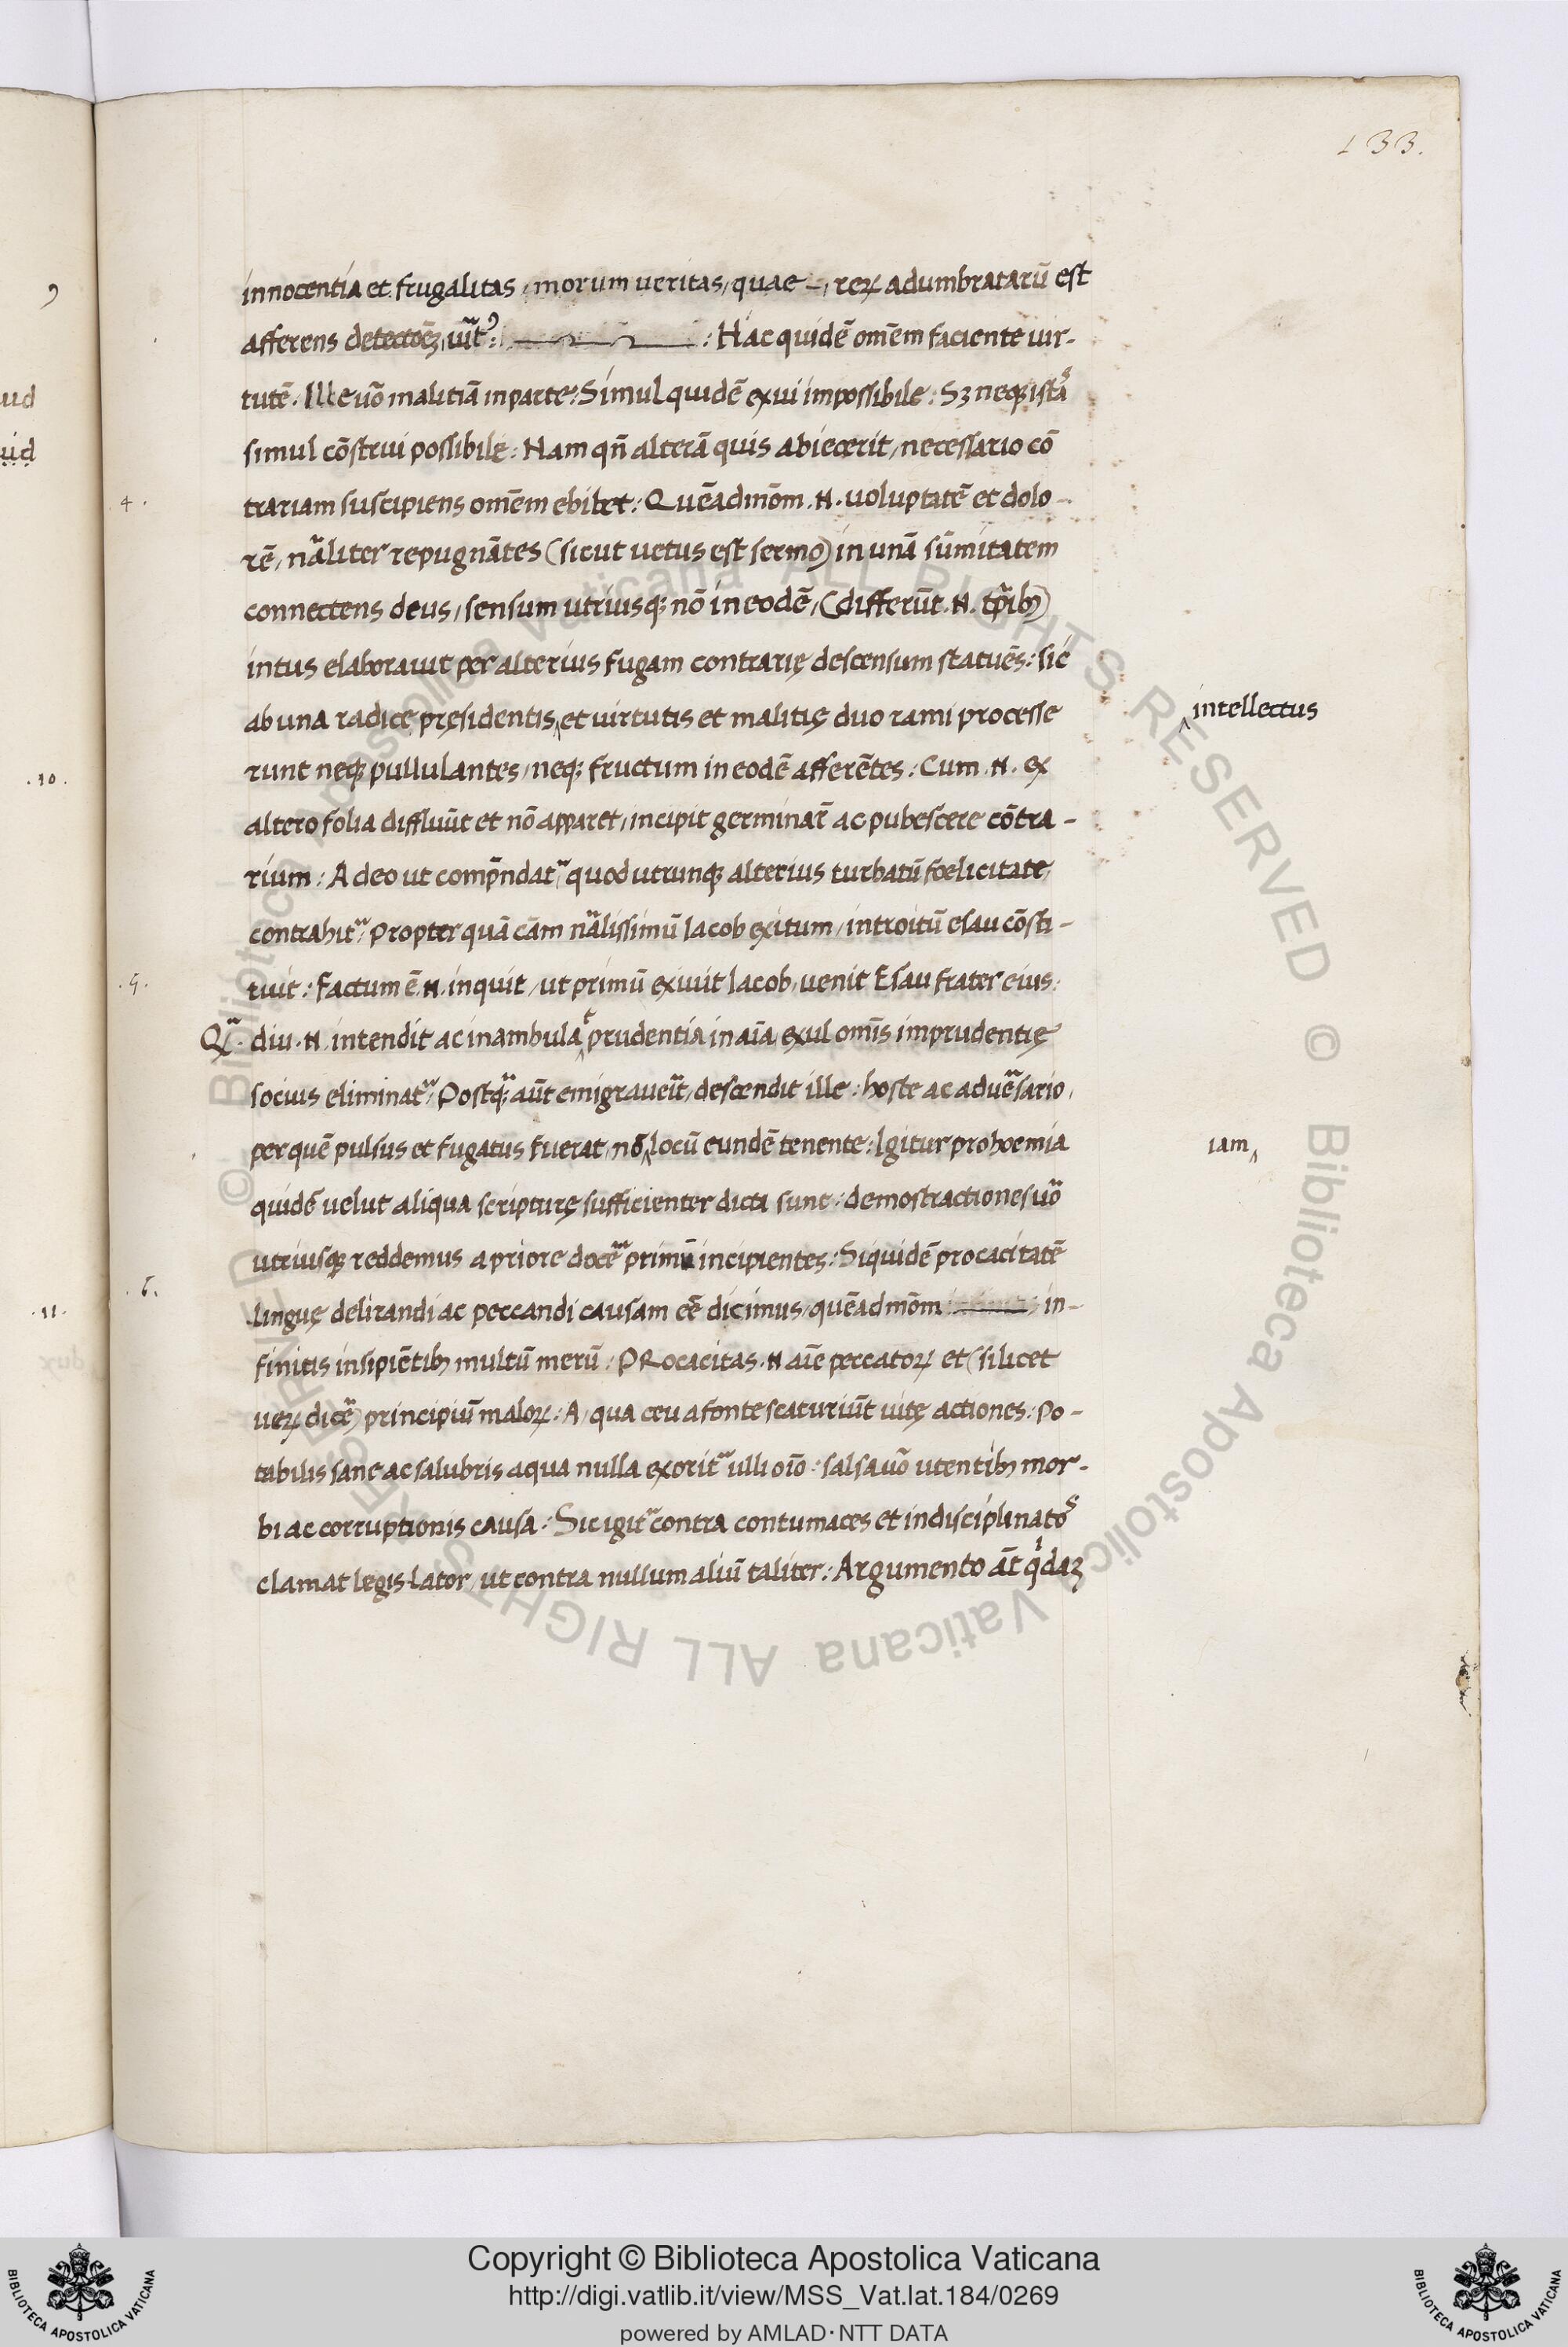 133.
innocentia et frugalitas, morum ueritas, quae –, reꝝ adumbratarū est
afferens
: Hac quidē omēm faciente uir-
tutē. Ille uō malitiā in parte: Simul quidē ex ui impossibile: Sꝫ neqꝫ istaˢ
simul cōstrui possibile: Nam qn̄ alterā quis abiecerit, necessario cō
4.
trariam suscipiens omēm ebibet: Quēadmōm .N. uoluptatē et dolo-
rē, nāliter repugnātes (sicut uetus est sermo) in unā sūmitatem
connectens deus, sensum utriusqꝫ nō in eodē, (differūt .N.
intus elaborauit per alterius fugam contrarię descensum statuēs: sic
ab una radice pręsidentis ‸et uirtutis et malitię duo rami processe
‸intellectus
.10.
runt neqꝫ pullulantes, neqꝫ fructum in eodē afferētes: Cum .N. ex
altero folia diffluūt et nō apparet, incipit germinar̄ ac pubescere cōtra-
rium: Adeo ut comp̄ndat᷑ quod utrunqꝫ alterius turbatū foelicitate,
contrahit᷑: Propter quā cām nālissimū Iacob exitum, introitū esau cōsti-
.5.
tuit: Factum ē .N. inquit, ut primū exiuit Iacob, uenit Esau frater eius:
diu .N. intendit ac inambula‸ᵗ prudentia in aīa, exul omīs imprudentię
socius eliminat᷑: Postq̄ aūt emigrauer̄it, descendit ille: hoste ac aduēsario,
per quē pulsus et fugatus fuerat, nō‸ locū eundē tenente: Igitur prohoemia
iam‸
quidē uelut aliqua scripturę sufficienter dicta sunt: demostractiones uō
utriusqꝫ reddemus a priore primū incipientes: Siquidē procacitatē
6.
.11.
linguę delirandi ac peccandi causam eē dicimus, quēadmōm in-
finitis insipiētibꝫ multū merū: PRocacitas .N. aīe peccatoꝝ et (si licet
ueꝝ dicē) principiū maloꝝ: A, qua ceu a fonte scaturiūt uitę actiones: Po-
tabilis sane ac salubris aqua nulla exorit᷑ ulli oīo: salsa uō utentibꝫ mor-
bi ac corruptionis causa: Sic igit᷑ contra contumaces et indisciplinatoˢ
clamat legis-lator, ut contra nullum aliū taliter: Argumento āt qͥdaꝫ
ud
ud
Copyright © Biblioteca Apostolica Vaticana
http://digi.vatlib.it/view/MSS_Vat.lat.184/0269
powered by AMLAD·NTT DATA
BIBLIOTECA APOSTOLICA VATICANA
BIBLIOTECA APOSTOLICA VATICANA
© Biblioteca Apostolica Vaticana ALL RIGHTS RESERVED © Biblioteca Apostolica Vaticana ALL RIGHTS RESERVED